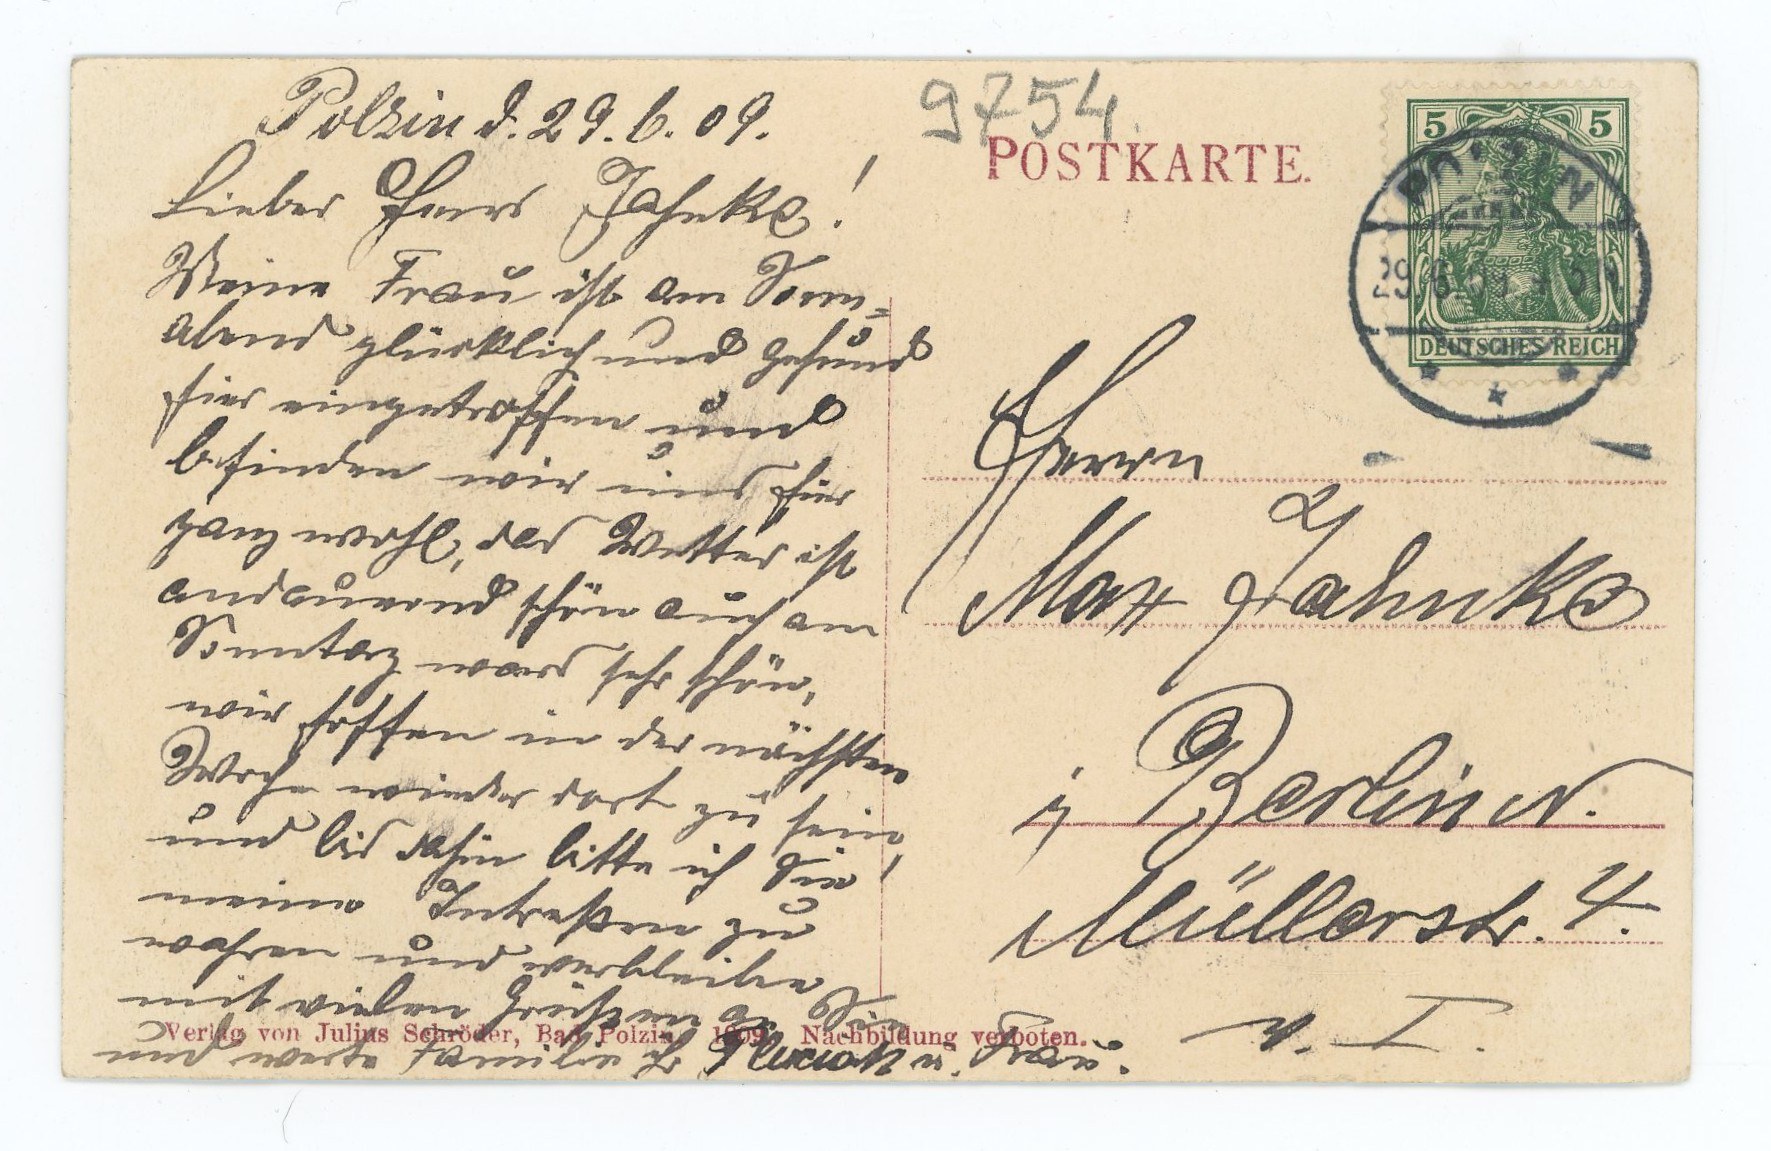 Polzin d. 29.6.09.
Lieber Herr Jahnke!
Meine Frau ist am Sonn=
abend glücklich und gesund
hier eingetroffen und
befinden wir uns hier
ganz wohl, das Wetter ist
andauernd schön auch am
Sonntag wars sehr schön,
wir hoffen in der nächsten
Woche wieder dort zu sein,
und bis dahin bitte ich Sie
meine Intreßen zu
wahren und verbleibe
mit vielen Grüßen an Sie
und werte Familie Ihr u. Frau.
9754
POSTKARTE.
5 5
DEUTSCHES REICH
POLZIN
29.6.09
Herrn
Max Jahnke
in Berlin N.
Müllerstr. 4.
v. I.
Verlag von Julius Schröder, Bad Polzin. 1909. Nachbildung verboten.